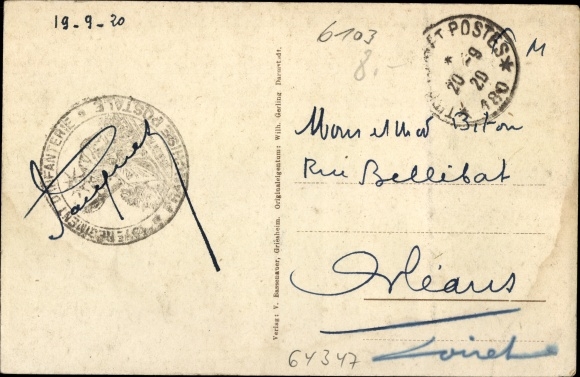 19-9-20
6103
8.-
F M
ET POSTES
20 -9
20
180
REGIMENT D'INFANTERIE
POSTALE
Jacques
Monsieur & Mad Biton
Rue Bellebat
Orléans
Loiret
Verlag: V. Bassenauer, Griesheim. Originaleigentum: Wilh. Gerling Darmstadt.
64347